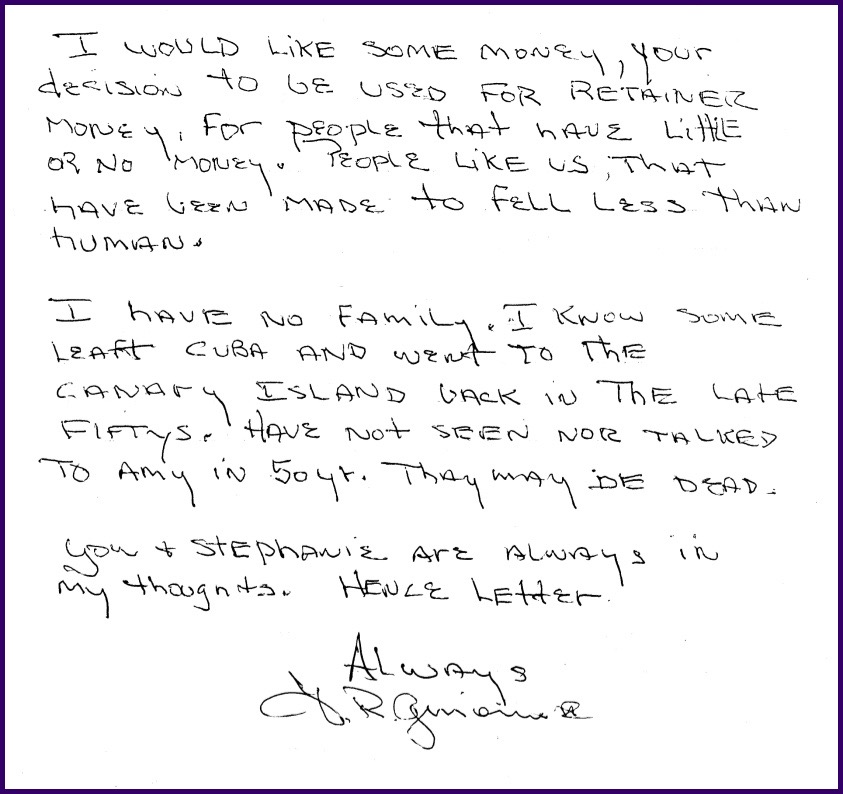 I WOULD LIKE SOME MONEY, YOUR
DECISION TO BE USED FOR RETAINER
MONEY, FOR PEOPLE THAT HAVE LITTLE
OR NO MONEY. PEOPLE LIKE US, THAT
HAVE BEEN MADE TO FELL LESS THAN
HUMAN.
I HAVE NO FAMILY. I KNOW SOME
LEAFT CUBA AND WENT TO THE
CANARY ISLAND BACK IN THE LATE
FIFTYS. HAVE NOT SEEN NOR TALKED
TO AMY IN 50 yr. THAY MAY BE DEAD.
you + STEPHANIE ARE ALWAYS IN
my thoughts. HENCE LETTER.
ALWAYS
R.